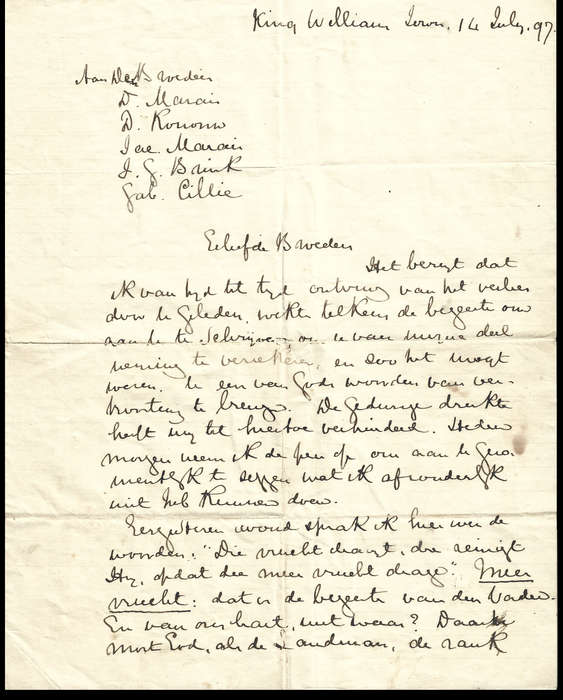 King William Town, 14 July. 97.
Aan De Broeders
D. Marais
D. Rossouw
Jac. Marais
J. G. Brink
Gab. Cillie
Geliefde Broeders
Het berigt dat
ik van tijd tot tijd ontving van het verlies
door u geleden, wekte telkens de begeerte om
aan u te schrijven, om u van mijne deel
neming te verzekeren, en zoo het mogt
wezen. U een van Gods woorden van ver-
troosting te brengen. De gedurige drukte
heeft mij tot hiertoe verhinderd. Heden
morgen neem ik de pen op om aan u geza
mentlijk te zeggen wat ik afzonderlijk
niet heb kunnen doen.
Eergisteren avond sprak ik hier over de
woorden: "Die vrucht draagt, die reinigt
Hij, opdat die meer vrucht drage". Meer
vrucht: dat is de begeerte van den Vader.
En van ons hart, niet waar? Daartoe
moet God, als de Landman, de rank